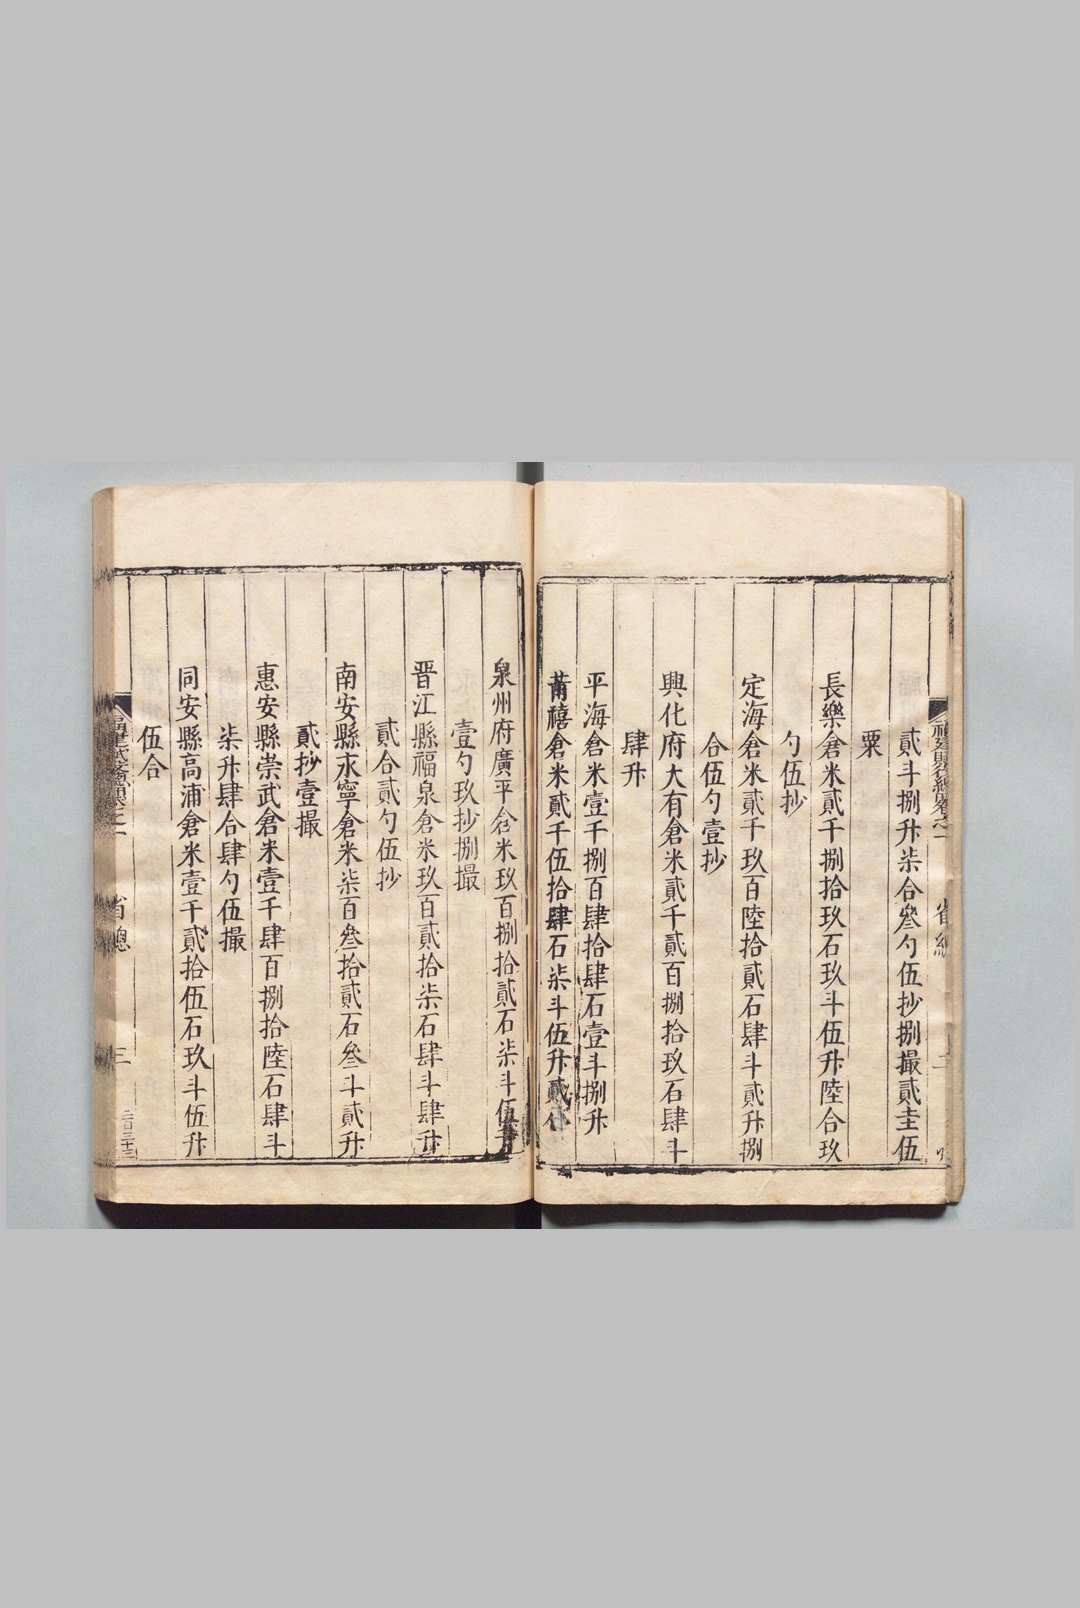 貳斗捌升柒合叄勺伍抄捌撮貳圭伍
粟
長樂倉米貳千捌拾玖石玖斗伍升陸合玖
勺伍抄
定海倉米貳千玖百陸拾貳石肆斗貳升捌
合伍勺壹抄
興化府大有倉米貳千貳百捌拾玖石肆斗
肆升
平海倉米壹千捌百肆拾肆石壹斗捌升
莆禧倉米貳千伍拾肆石柒斗伍升貳合
泉州府廣平倉米玖百捌拾貳石柒斗伍升
壹勺玖抄捌撮
晋江縣福泉倉米玖百貳拾柒石肆斗肆升
貳合貳勺伍抄
南安縣永寧倉米柒百叄拾貳石叄斗貳升
貳抄壹撮
惠安縣崇武倉米壹千肆百捌拾陸石肆斗
柒升肆合肆勺伍撮
同安縣高浦倉米壹千貳拾伍石玖斗伍升
伍合
省總
三